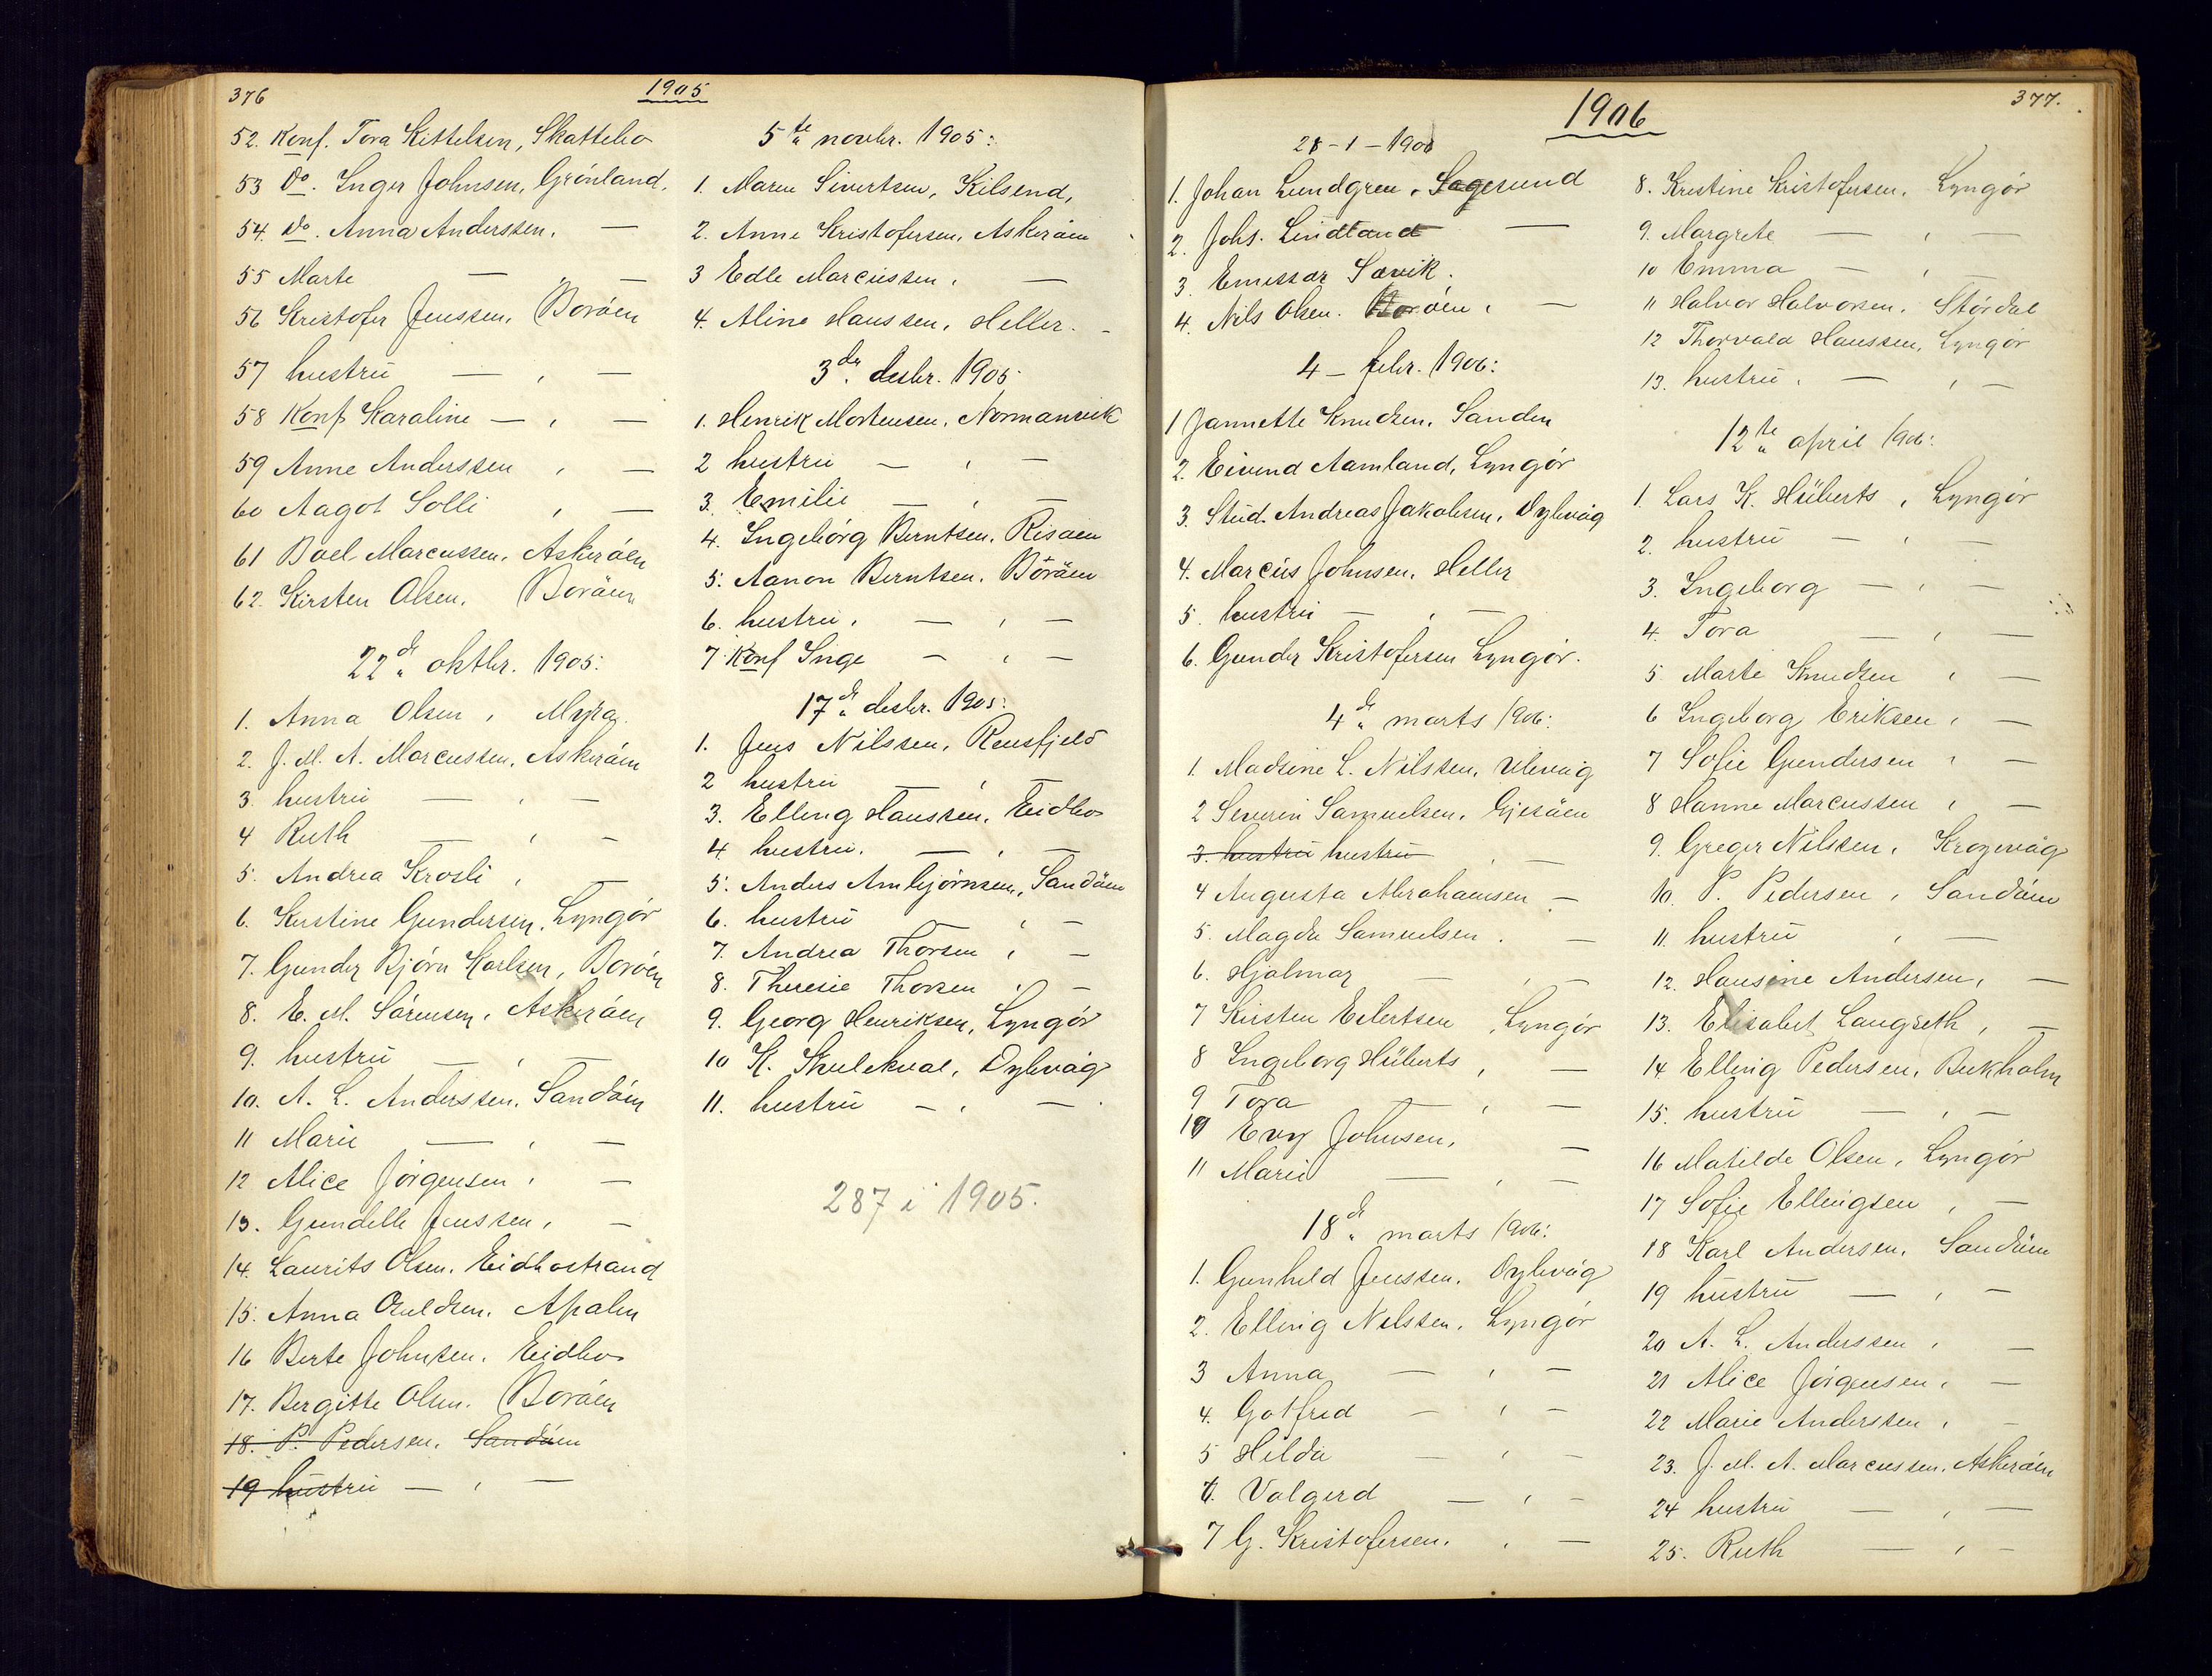 376
1905
52. Konf. Tora Kittelsen, Skattebo
53 Do. Inger Johnsen, Grönland.
54. Do. Anna Anderssen. —
55 Marte — „ —
56 Kristofer Jenssen. Boröen
57 hustrü — , —
58 Konf Karaline — , —
59 Anne Anderssen , —
60 Aagot Solli , —
61 Boel Marcussen. Askeröen
62. Kirsten Olsen. Boröen
22de oktbr. 1905:
1. Anna Olsen , Myra.
2. J. M. A. Marcussen. Askeröen
3. hustrü — , —
4 Ruth — , —
5. Andrea Krosli , —
6. Kirstine Gundersen, Lyngör
7. Gunder Björn Karlsen, Boröen
8. E. M. Sörensen, Askeröen
9. hustrü — , —
10. A. L. Anderssen. Sandöen
11 Marie — , —
12 Alice Jörgensen , —
13. Gundelle Jenssen, —
14. Laurits Olsen. Eidbostrand
15. Anna Ouldsen. Apalen
16 Berte Johnsen. Eidbo
17. Bergitte Olsen. Boröen
18. P. Pedersen. Sandöen
19 hustrü — , —
5te novbr. 1905:
1. Maren Sivertsen, Kilsend,
2. Anne Kristofersen, Askeröen
3 Edle Marcüssen , —
4. Aline Hanssen, Heller. -
3de desbr. 1905.
1. Henrik Mortensen, Normanvik
2 hustrü — , —
3. Emilie — , —
4. Ingebörg Berntsen. Risöen
5. Aanon Berntsen. Böröen
6. hustrü , — , —
7. Konf Inge — , —
17de desbr. 1905:
1. Jens Nilssen, Rensfjeld
2 hustrü — , —
3. Elling Hanssen. Eidbo
4. hustrü. — , —
5. Anders Ambjörnsen, Sandöen
6. hustrü — , —
7. Andrea Thorsen , —
8. Theresie Thorsen , —
9. Georg Henriksen, Lyngör
10 K. Skulekval, Dybvåg
11. hustrü — , — .
287 i 1905.
377.
1906
21-1-1906
1. Johan Lundgren. Sagesund
2. Johs. Lindtand —
3. Emissær Sævik.
4. Nils Olsen. Boröen , —
4 – febr. 1906:
1 Jannette Knudsen. Sanden
2. Eivind Aamland, Lyngör
3. Stüd. Andreas Jakobsen, Dybvåg
4. Marcüs Johnsen. Heller
5. hustrü — , —
6. Gunder Kristofersen Lyngör.
4de marts 1906:
1. Madsine L. Nilssen. Ulevåg
2 Severin Samuelsen. Gjesöen
3. hustrü hustrü , —
4 Augusta Abrahamsen —
5. Magda Samuelsen . —
6. Hjalmar — , —
7 Kirsten Eilertsen , Lyngör
8 Ingeborg Hüberts , —
9 Tora — , —
10 Evy Johnsen, —
11 Marie — , —
18de marts 1906:
1. Gunhild Jenssen. Dybvåg
2. Elling Nilssen. Lyngör
3 Anna — , —
4. Gotfred — , —
5 Hilda — , —
6. Valgerd — , —
7 G. Kristofersen. , —
8. Kristine Kristofersen. Lyngör
9. Margrete — , —
10 Emma — , —
11 Halvor Halvorsen. Stördal
12 Thorvald Hanssen, Lyngör
13. hustrü , — , —
12te april 1906:
1. Lars K. Hüberts , Lyngör
2. hustrü — , —
3. Ingeborg — , —
4. Tora — , —
5 Marte Knudsen , —
6 Ingeborg Eriksen , —
7 Sofie Gundersen , —
8 Hanne Marcussen , —
9. Greger Nilssen, Krogevåg
10. P. Pedersen , Sandöen
11. hustrü , —
12. Hansine Andersen, —
13. Elisabet Langseth , —
14. Elling Pedersen. Bukholm
15. hustrü — , —
16 Matilde Olsen, Lyngör
17 Sofie Ellingsen , —
18 Karl Andersen. Sandöen
19 hüstrü — , —
20 A. L. Anderssen , —
21 Alice Jörgensen , —
22 Marie Anderssen , —
23. J. M. A. Marcussen. Askeröen
24 hustrü — , —
25. Ruth — , —